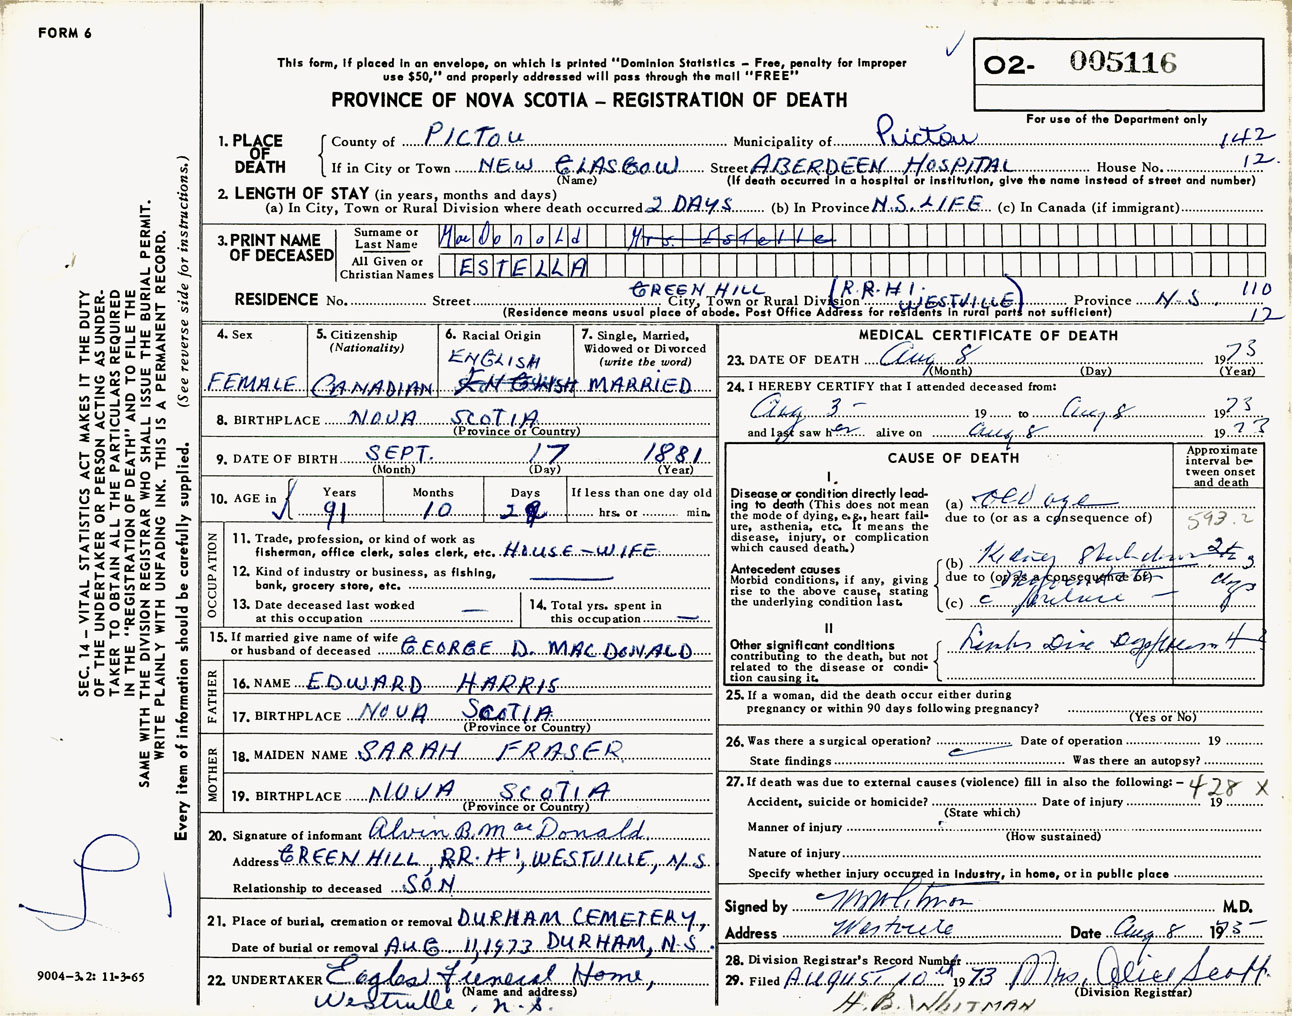 FORM 6
This form, if placed in an envelope, on which is printed "Dominion Statistics – Free, penalty for improper
use $50," and properly addressed will pass through the mail "FREE"
O2- 005116
For use of the Department only
PROVINCE OF NOVA SCOTIA – REGISTRATION OF DEATH
1. PLACE OF DEATH
County of PICTOU Municipality of Pictou 142
If in City or Town NEW GLASGOW Street ABERDEEN HOSPITAL House No. 12.
(Name) (If death occurred in a hospital or institution, give the name instead of street and number)
2. LENGTH OF STAY (in years, months and days)
(a) In City, Town or Rural Division where death occurred 2 DAYS (b) In Province N.S. LIFE (c) In Canada (if immigrant)
3. PRINT NAME OF DECEASED
Surname or Last Name MacDonald Mrs. Estelle
All Given or Christian Names ESTELLA
GREEN HILL (R.R.#1. WESTVILLE)
RESIDENCE No. Street City, Town or Rural Division Province N.S. 110
(Residence means usual place of abode. Post Office Address for residents in rural parts not sufficient) 12
4. Sex FEMALE
5. Citizenship (Nationality) CANADIAN
6. Racial Origin ENGLISH
7. Single, Married, Widowed or Divorced (write the word) MARRIED
8. BIRTHPLACE NOVA SCOTIA
(Province or Country)
9. DATE OF BIRTH SEPT. 17 1881
(Month) (Day) (Year)
10. AGE in Years 91 Months 10 Days If less than one day old hrs. or min.
OCCUPATION
11. Trade, profession, or kind of work as
fisherman, office clerk, sales clerk, etc. HOUSE-WIFE
12. Kind of industry or business, as fishing,
bank, grocery store, etc.
13. Date deceased last worked
at this occupation —
14. Total yrs. spent in
this occupation —
15. If married give name of wife
or husband of deceased GEORGE D. MACDONALD
FATHER
16. NAME EDWARD HARRIS
17. BIRTHPLACE NOVA SCOTIA
(Province or Country)
MOTHER
18. MAIDEN NAME SARAH FRASER
19. BIRTHPLACE NOVA SCOTIA
(Province or Country)
20. Signature of informant Alvin B. MacDonald
Address GREEN HILL, RR.#1, WESTVILLE, N.S.
Relationship to deceased SON
21. Place of burial, cremation or removal DURHAM CEMETERY,
Date of burial or removal AUG. 11, 1973 DURHAM, N.S.
22. UNDERTAKER Eagles Funeral Home,
(Name and address)
Westville, N.S.
MEDICAL CERTIFICATE OF DEATH
23. DATE OF DEATH Aug 8 1973
(Month) (Day) (Year)
24. I HEREBY CERTIFY that I attended deceased from:
Aug 3 - 19 to Aug 8 1973
and last saw her alive on Aug 8 1973
CAUSE OF DEATH
Approximate interval between onset and death
I.
Disease or condition directly lead-
ing to death (This does not
mean the mode of dying, e.g., heart fail-
ure, asthenia, etc. It means the
disease, injury, or complication
which caused death.)
(a) Old age
due to (or as a consequence of) 593.2
Antecedent causes
Morbid conditions, if any, giving
rise to the above cause, stating
the underlying condition last.
(b) Kidney
due to (or as a consequence of)
(c) failure
II
Other significant conditions
contributing to the death, but not
related to the disease or condi-
tion causing it.
25. If a woman, did the death occur either during
pregnancy or within 90 days following pregnancy?
(Yes or No)
26. Was there a surgical operation? Date of operation 19
State findings Was there an autopsy?
27. If death was due to external causes (violence) fill in also the following: – 428 X
Accident, suicide or homicide? Date of injury 19
(State which)
Manner of injury
(How sustained)
Nature of injury
Specify whether injury occurred in Industry, in home, or in public place
Signed by M.D.
Address Westville Date Aug 8 19
28. Division Registrar's Record Number
29. Filed AUGUST 10th 1973 Mrs. Alice Scott
(Division Registrar)
H. B. WHITMAN
SEC. 14 – VITAL STATISTICS ACT MAKES IT THE DUTY
OF THE UNDERTAKER OR PERSON ACTING AS UNDER-
TAKER TO OBTAIN ALL THE PARTICULARS REQUIRED
IN THE "REGISTRATION OF DEATH" AND TO FILE THE
SAME WITH THE DIVISION REGISTRAR WHO SHALL ISSUE THE BURIAL PERMIT.
WRITE PLAINLY WITH UNFADING INK. THIS IS A PERMANENT RECORD.
Every item of information should be carefully supplied. (See reverse side for instructions.)
9004–3.2: 11-3-65